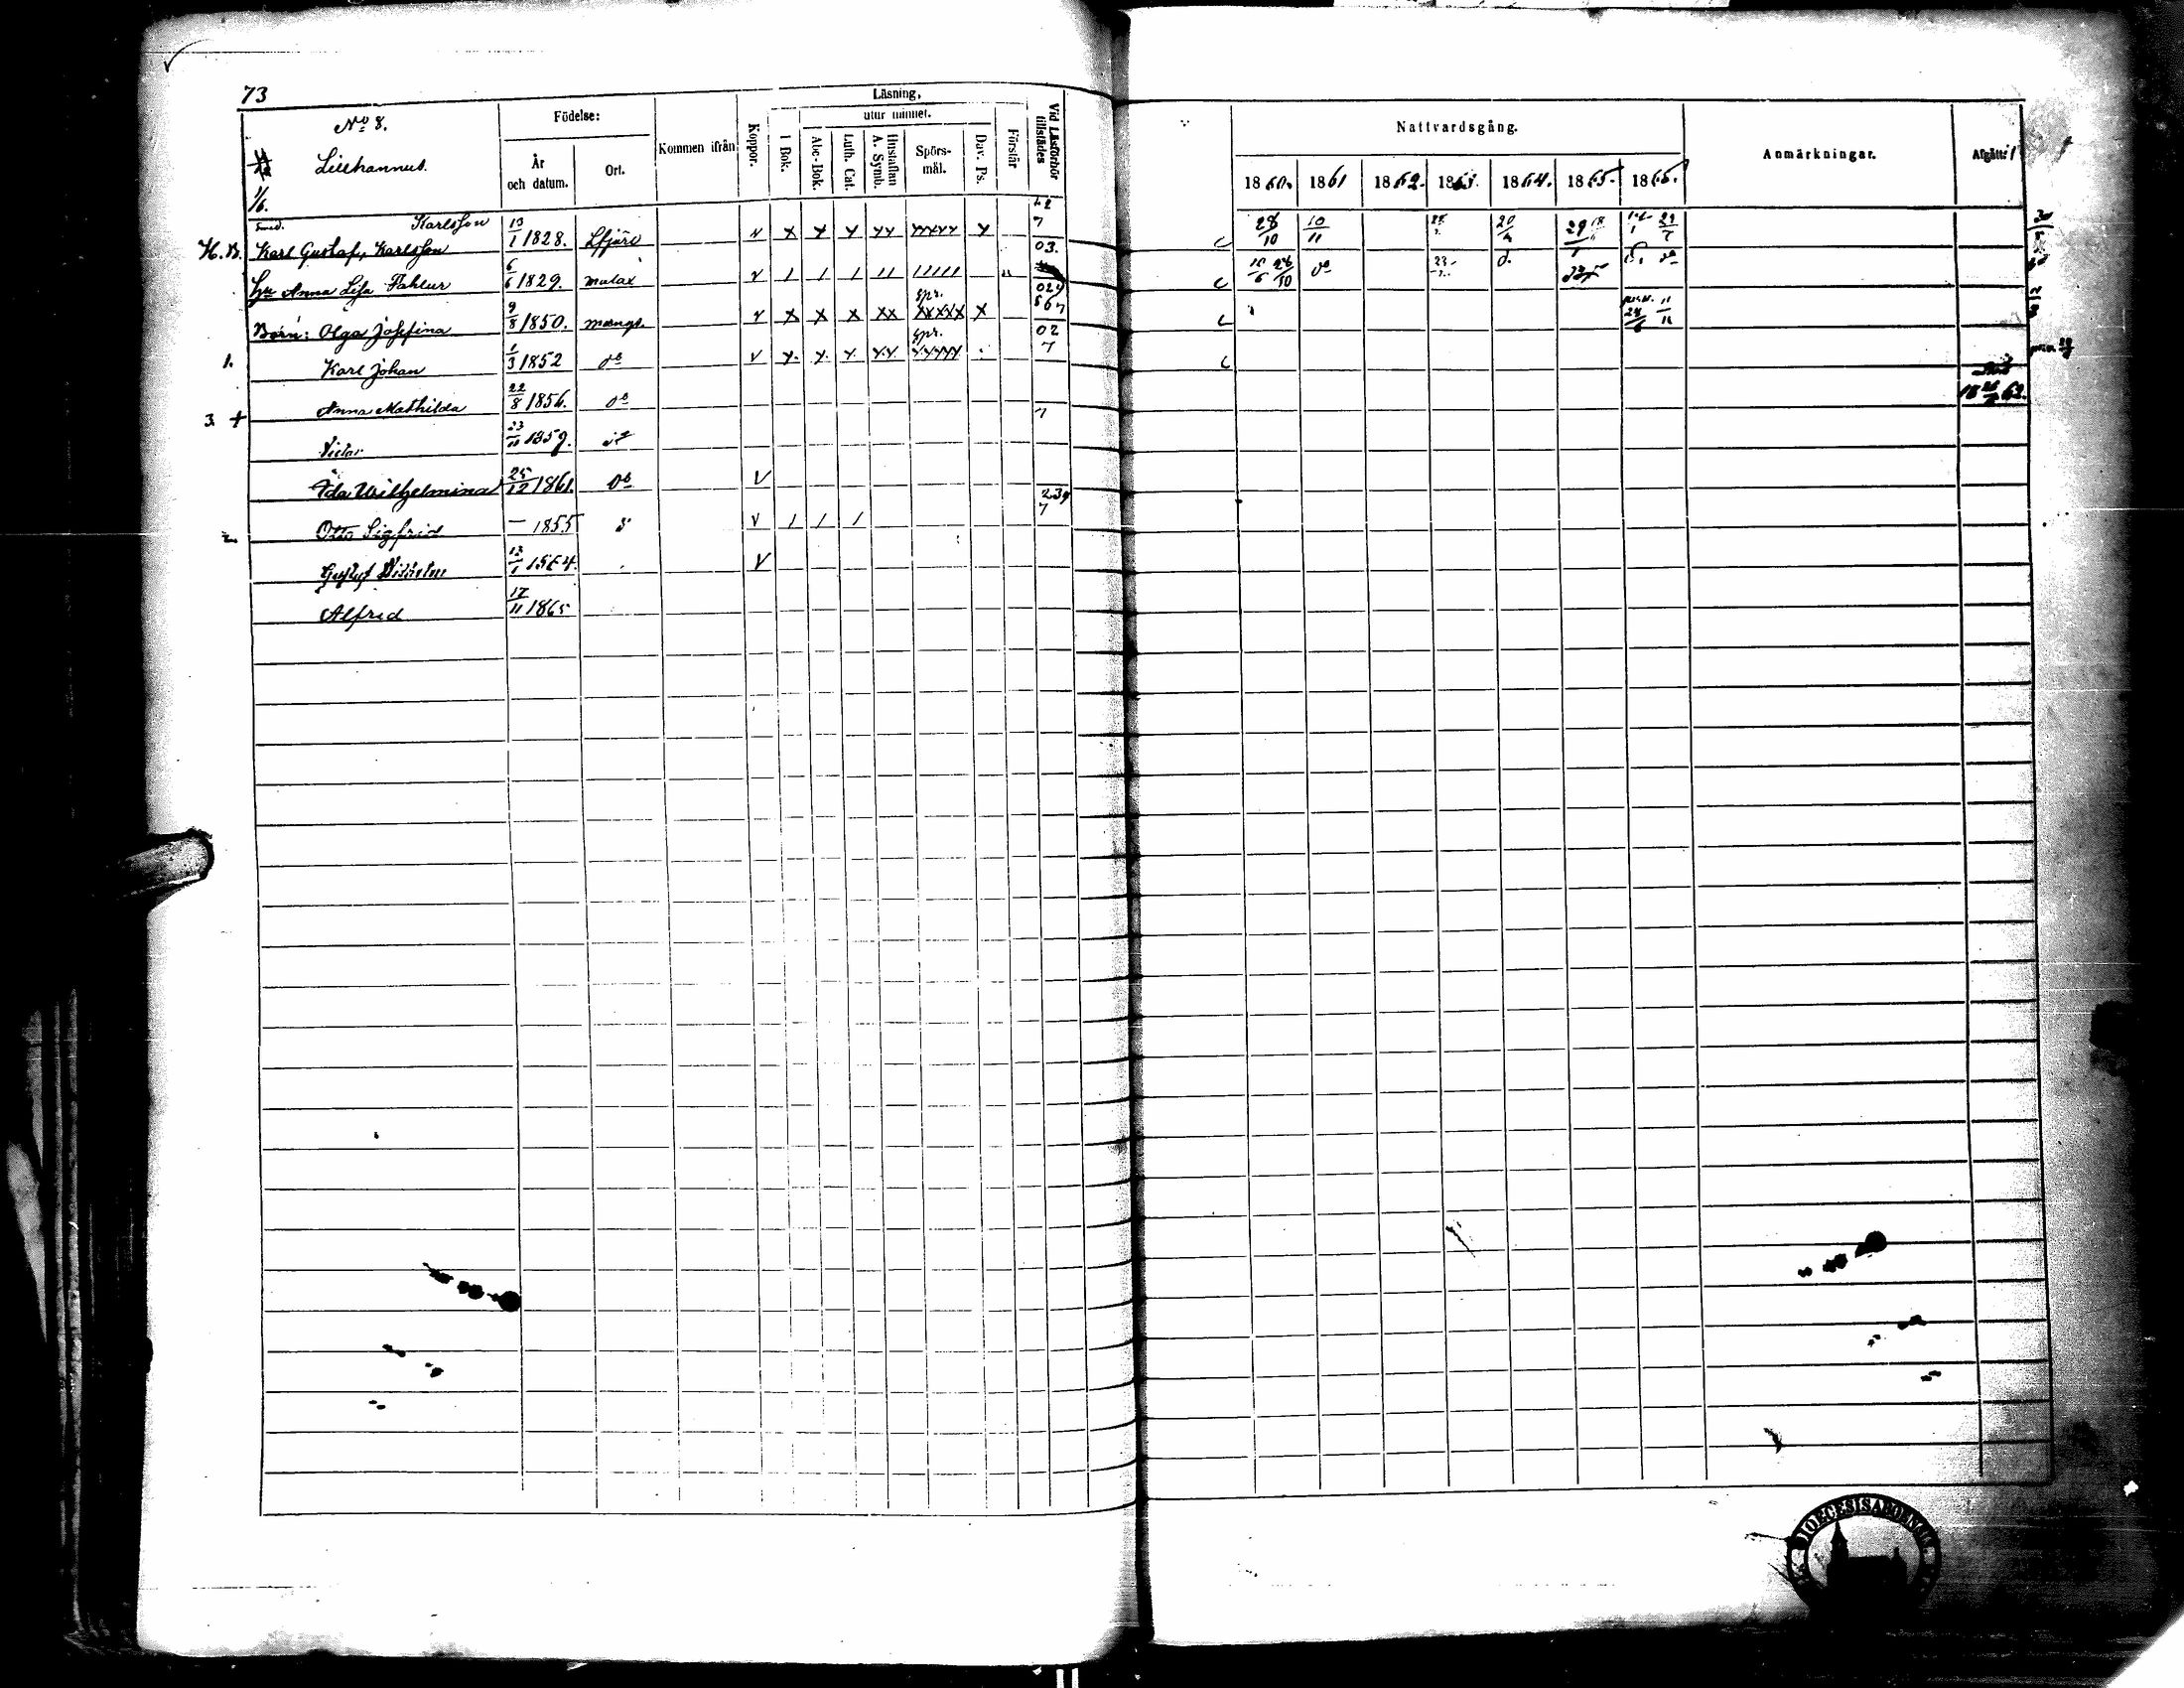 73
No 8.
Lillhannus.
1/6.
Födelse:
År och datum.
Ort.
Kommen ifrån
Koppor.
Läsning,
utur minnet.
I Bok.
Abc-Bok.
Luth. Cat.
Hustaflan A. Symb.
Spörs-mål.
Dav. Ps.
Förstår
Vid Läsförhör tillstädes
Nattvardsgång.
1860. 1861 1862. 1863. 1864. 1865. 1866.
Anmärkningar.
Afgått:
Smed. Karlsson
H.B. Karl Gustaf, Karlsson 13/1 1828. Lfjärd v x x x xx xxxxx x 7 28/10 10/11 20/4
03.
Hu Anna Lisa Fahlur 6/6 1829. malax v / / / // ///// 10/6 28/10 do
024
567
Börn: Olga Josefina 9/8 1850. mangs. v x x x xx spr. xxxxx x 24/6 11/11
02
7
1. Karl Johan 1/3 1852 do v x. x. x. x.x. spr. x.xxxx
3. + Anna Mathilda 22/8 1856. do
7
Victor 23/11 1859. do
Ida Wilhelmina 25/12 1861. do v
2. Otto Sigfrid — 1855 v / / /
7
Gustaf Wilhelm 13/1 1864. v
Alfred 17/11 1865
DIOECESIS ABOENSIS